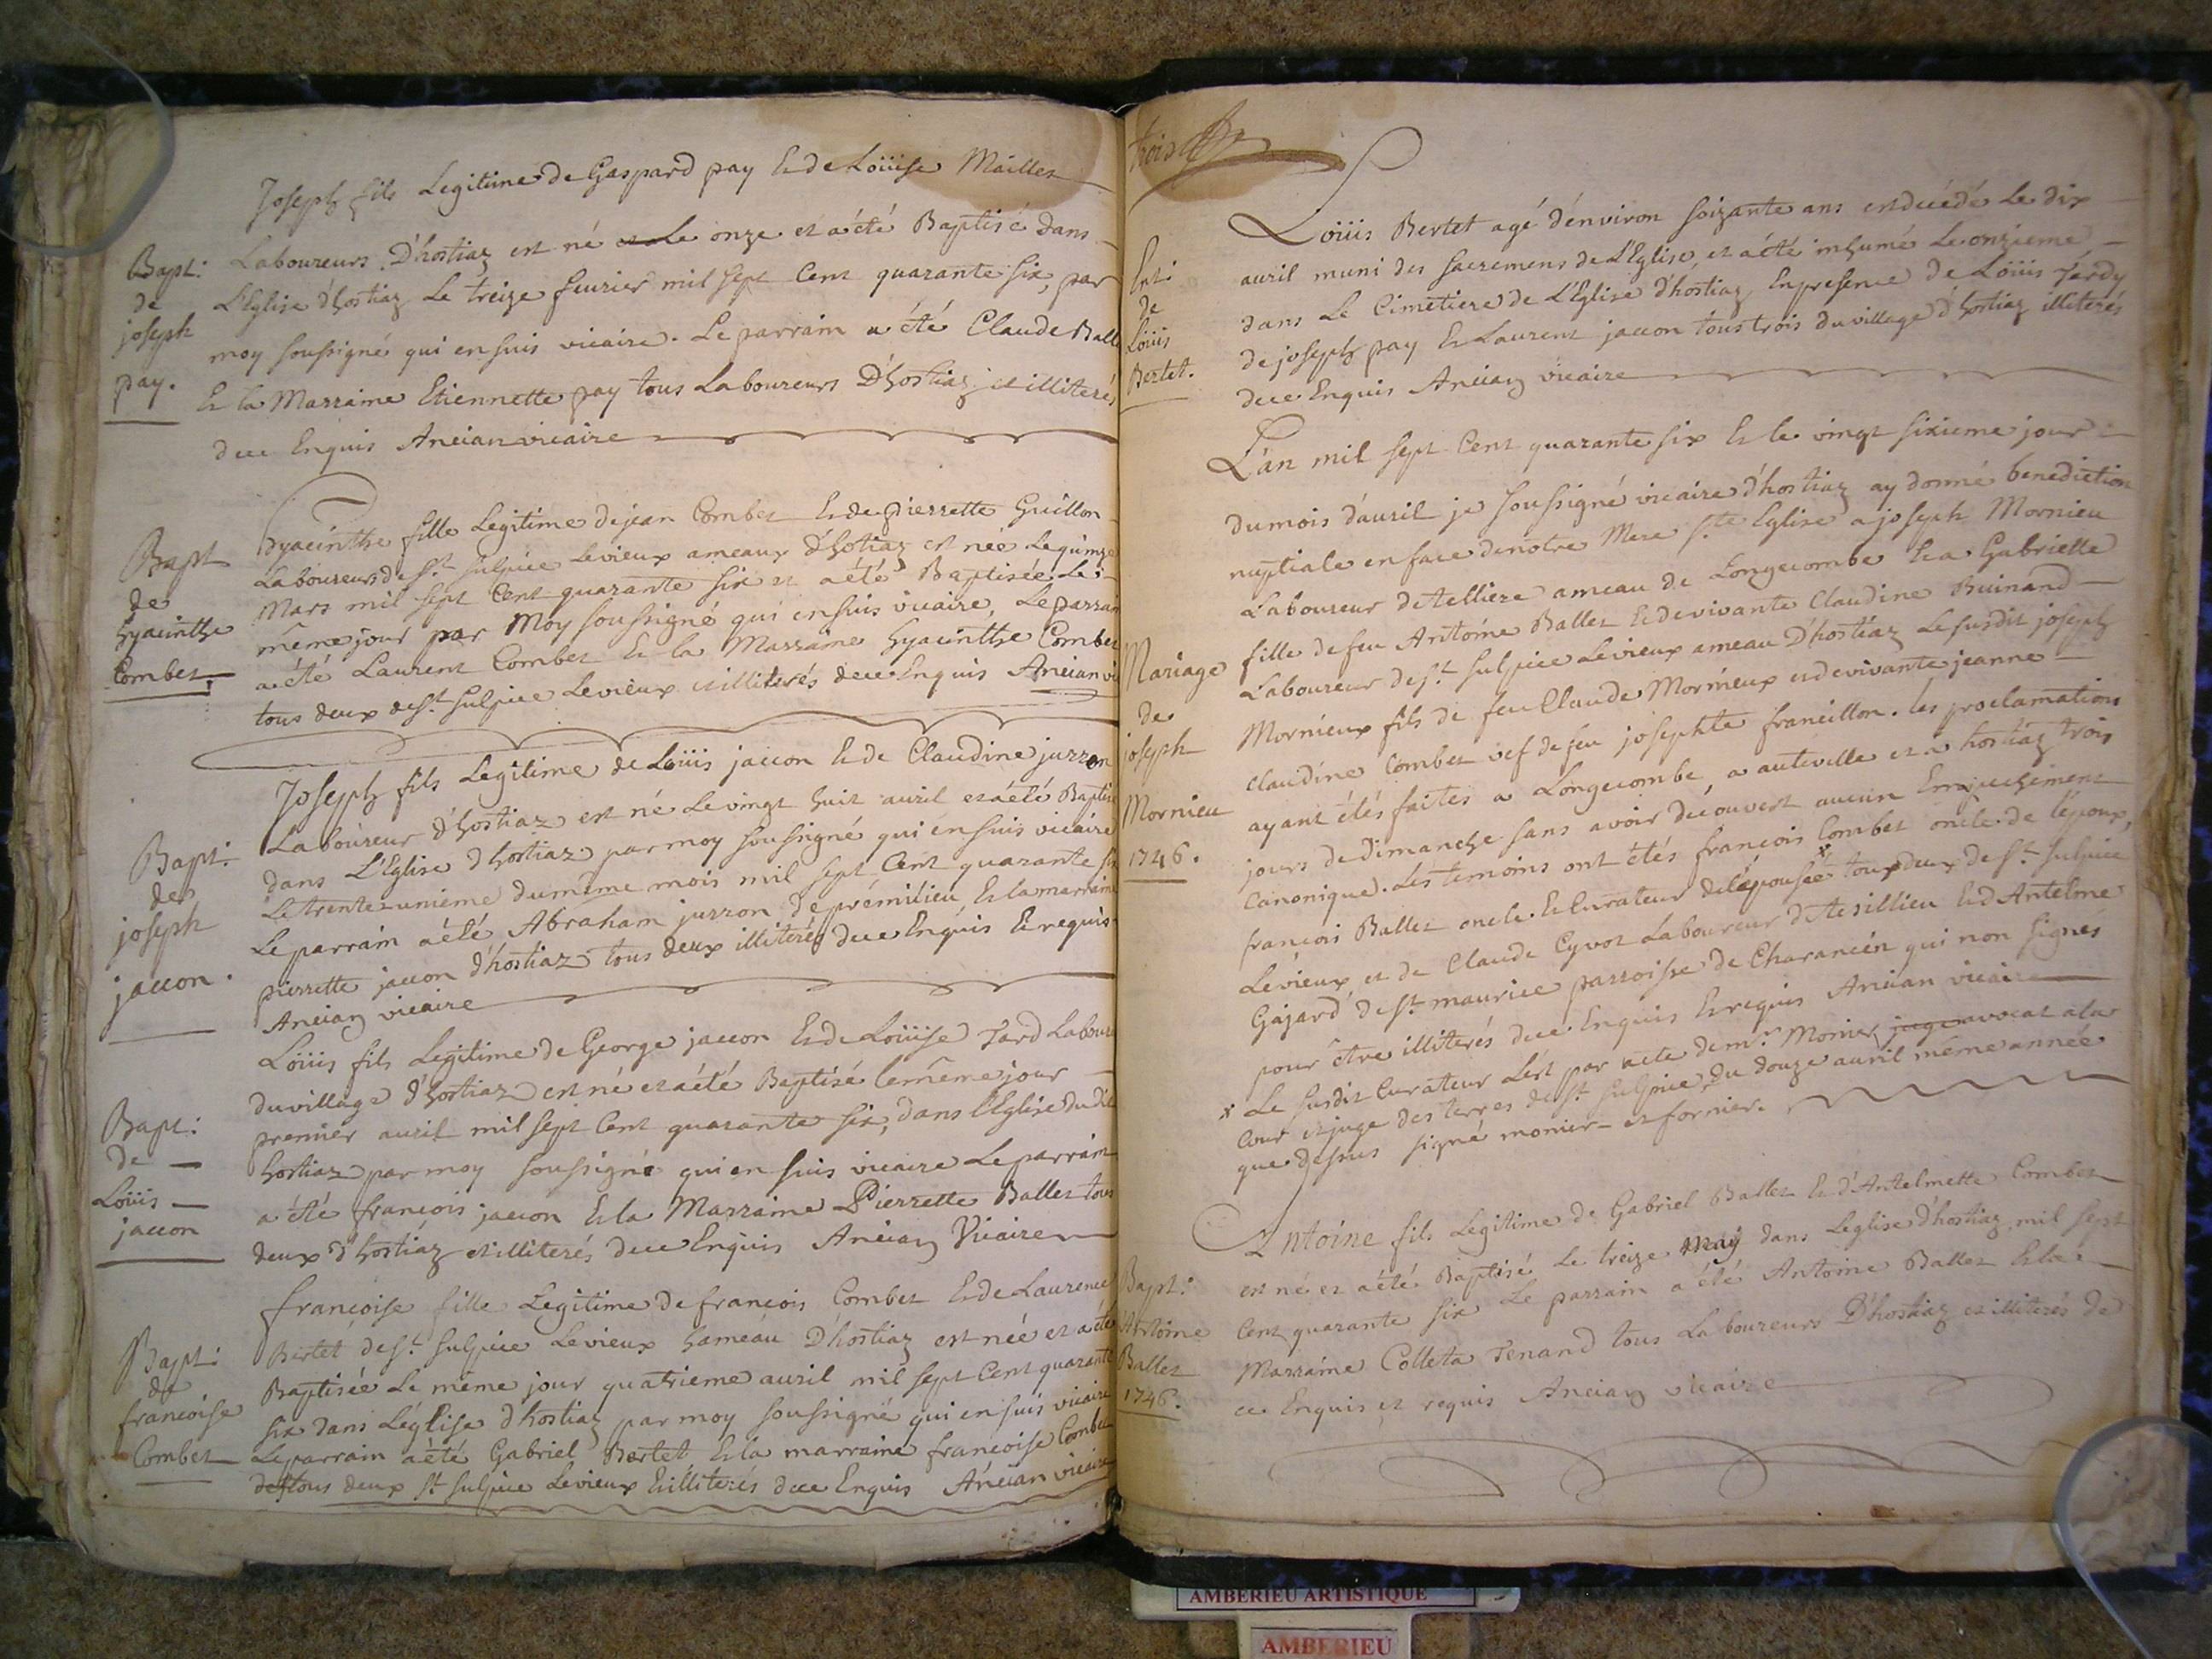 Joseph fils Legitime de Gaspard pay Et de Loüise Mailler
Bapt:
de
joseph
pay.
Laboureurs D'hostiaz est né le onze et a été Baptisé dans
L'Eglise d'hostiaz Le treize feurier mil sept Cent quarante six, par
moy soussigné qui en suis vicaire. Le parrain a été Claude Ball
Et la Marraine Etiennette pay tous Laboureurs D'hostiaz et illiterés
de ce Enquis Ancian vicaire
Bapt
de
hyacinthe
Combet
hyacinthe fille Legitime de jean Combet Et de pierrette Guillon
Laboureurs de st. sulpice Levieux ameaux d'hotiaz est née Le quinze
Mars mil sept Cent quarante six et a été Baptisée Le
même jour par Moy soussigné qui en suis vicaire, Le parrain
a été Laurent Combet Et la Marraine hyacinthe Combet
tous deux de st. sulpice Levieux et illiterés de ce Enquis Ancian vi
Joseph fils Legitime de Loüis jaccon Et de Claudine jurron
Bapt:
de
joseph
jaccon.
Laboureur d'hostiaz est né Le vingt huit auril et a été Baptisé
dans L'Eglise d'hostiaz par moy soussigné qui en suis vicaire
Le trente unième du même mois mil sept Cent quarante si
Le parrain a été Abraham jurron de prémilieu, Et la marraine
pierrette jaccon d'hostiaz tous deux illiterés de ce Enquis Et requis
Ancian vicaire
Loüis fils Legitime de George jaccon Et de Loüise Tard Labour
Bapt:
de
Loüis
jaccon
du village d'hostiaz est né et a été Baptisé le même jour
premier auril mil sept Cent quarante six, dans l'Eglise du dit
hostiaz par moy soussigné qui en suis vicaire Le parrain
a été françois jaccon Et la Marraine Pierrette Ballet tous
deux d'hostiaz et illiterés de ce Enquis Ancian Vicaire
françoise fille Legitime de françois Combet Et de Laurence
Bapt:
de
françoise
Combet
Bertet de st. sulpice Levieux hameau D'hostiaz est née et a été
Baptisée Le même jour quatrieme auril mil sept Cent quarante
six dans L'église d'hostiaz par moy soussigné qui en suis vicaire
Le parrain a été Gabriel Bertet Et la marraine françoise Combet
tous deux st. sulpice Levieux Et illiterés de ce Enquis Ancian vicaire
trois
Ent:
de
Loüis
Bertet.
Loüis Bertet agé d'environ soizante ans est décédé Le dix
auril muni des sacremens de L'Eglise, et a été inhumé Le onzieme
dans Le Cimetiere de L'Eglise d'hostiaz En presence de Loüis Tardy
de joseph pay Et Laurent jaccon tous trois du village d'hostiaz illiterés
de ce Enquis Ancian vicaire
L'an mil sept Cent quarante six Et le vingt sixieme jour
du mois d'auril je soussigné vicaire d'hostiaz ay donné benediction
nuptiale en face de notre Mere ste Eglise a joseph Mornieu
Laboureur de telliere ameau de Longecombe Et a Gabrielle
Mariage
de
joseph
Mornieu
1746.
fille de feu Antoine Ballet Et de vivante Claudine Buinand
Laboureur de st. sulpice Levieux ameau D'hostiaz Le susdit joseph
Mornieux fils de feu Claude Mornieux et de vivante jeanne
claudine Combet vef de feu josephte francillon. les proclamations
ayant étés faites a Longecombe, a auteville et a hostiaz trois
jours de Dimanche sans avoir découvert aucun Empechement
Canonique. Les temoins ont étés françois Combet oncle de l'époux,
françois Ballet oncle. Et Curateur de l'épousée x tous deux de st. sulpice
Levieux, et de Claude Cyvot Laboureur d'Ansillieu Et d'Antelme
Gajard de st. maurice parroisse de Charancin qui non signés
pour être illiterés de ce Enquis Et requis Ancian vicaire
x Le susdit Curateur L'est par acte de mr. Monier juge avocat a la
Cour et juge des terres de st. sulpice, du douze auril même année
que dessus signé monier et fornier.
Bapt:
Antoine
Ballet
1746.
Antoine fils Legitime de Gabriel Ballet Et d'Antelmette Combet
est né et a été Baptisé Le treize may dans Leglise d'hostiaz mil sept
Cent quarante six Le parrain a été Antoine Ballet Et la
Marraine Colleta Tenand tous Laboureurs D'hostiaz et illiterés de
ce Enquis et requis Ancian vicaire
AMBERIEU ARTISTIQUE
AMBERIEU